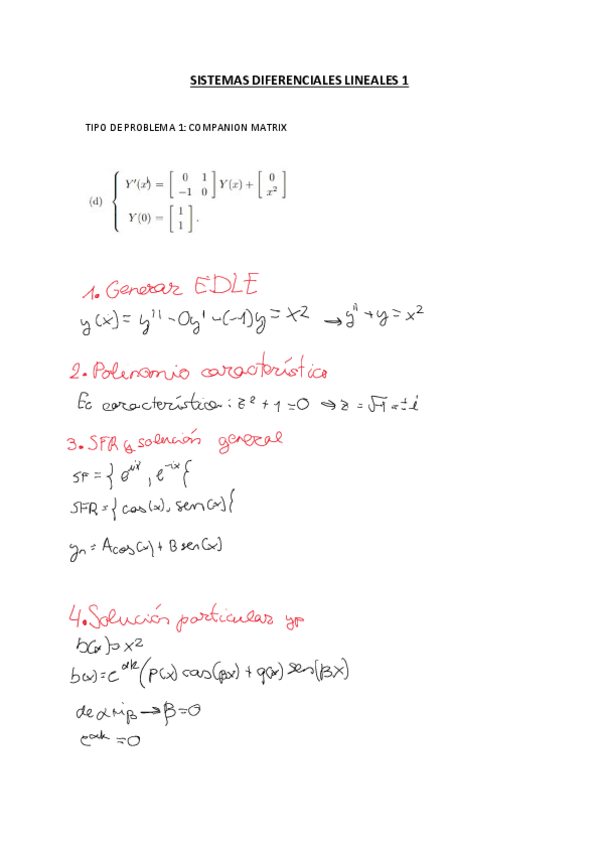 SISTEMAS DIFERENCIALES LINEALES 1
TIPO DE PROBLEMA 1: COMPANION MATRIX
(d) { Y'(x) = [ 0 1 ; -1 0 ] Y(x) + [ 0 ; x² ]
Y(0) = [ 1 ; 1 ].
1. Generar EDLE
y(x) = y'' - 0y' - (-1)y = x2 → y'' + y = x²
2. Polinomio característico
Ec característica: z² + 1 = 0 → z = √-1 = ±i
3. SFR y solución general
SF = { e^ix, e^-ix {
SFR = { cos(x), sen(x) {
yh = A cos(x) + B sen(x)
4. Solución particular yp
b(x) = x²
b(x) = e^αx (P(x) cos(βx) + q(x) sen(βx)
de α+iβ → β=0
e^αx = 0